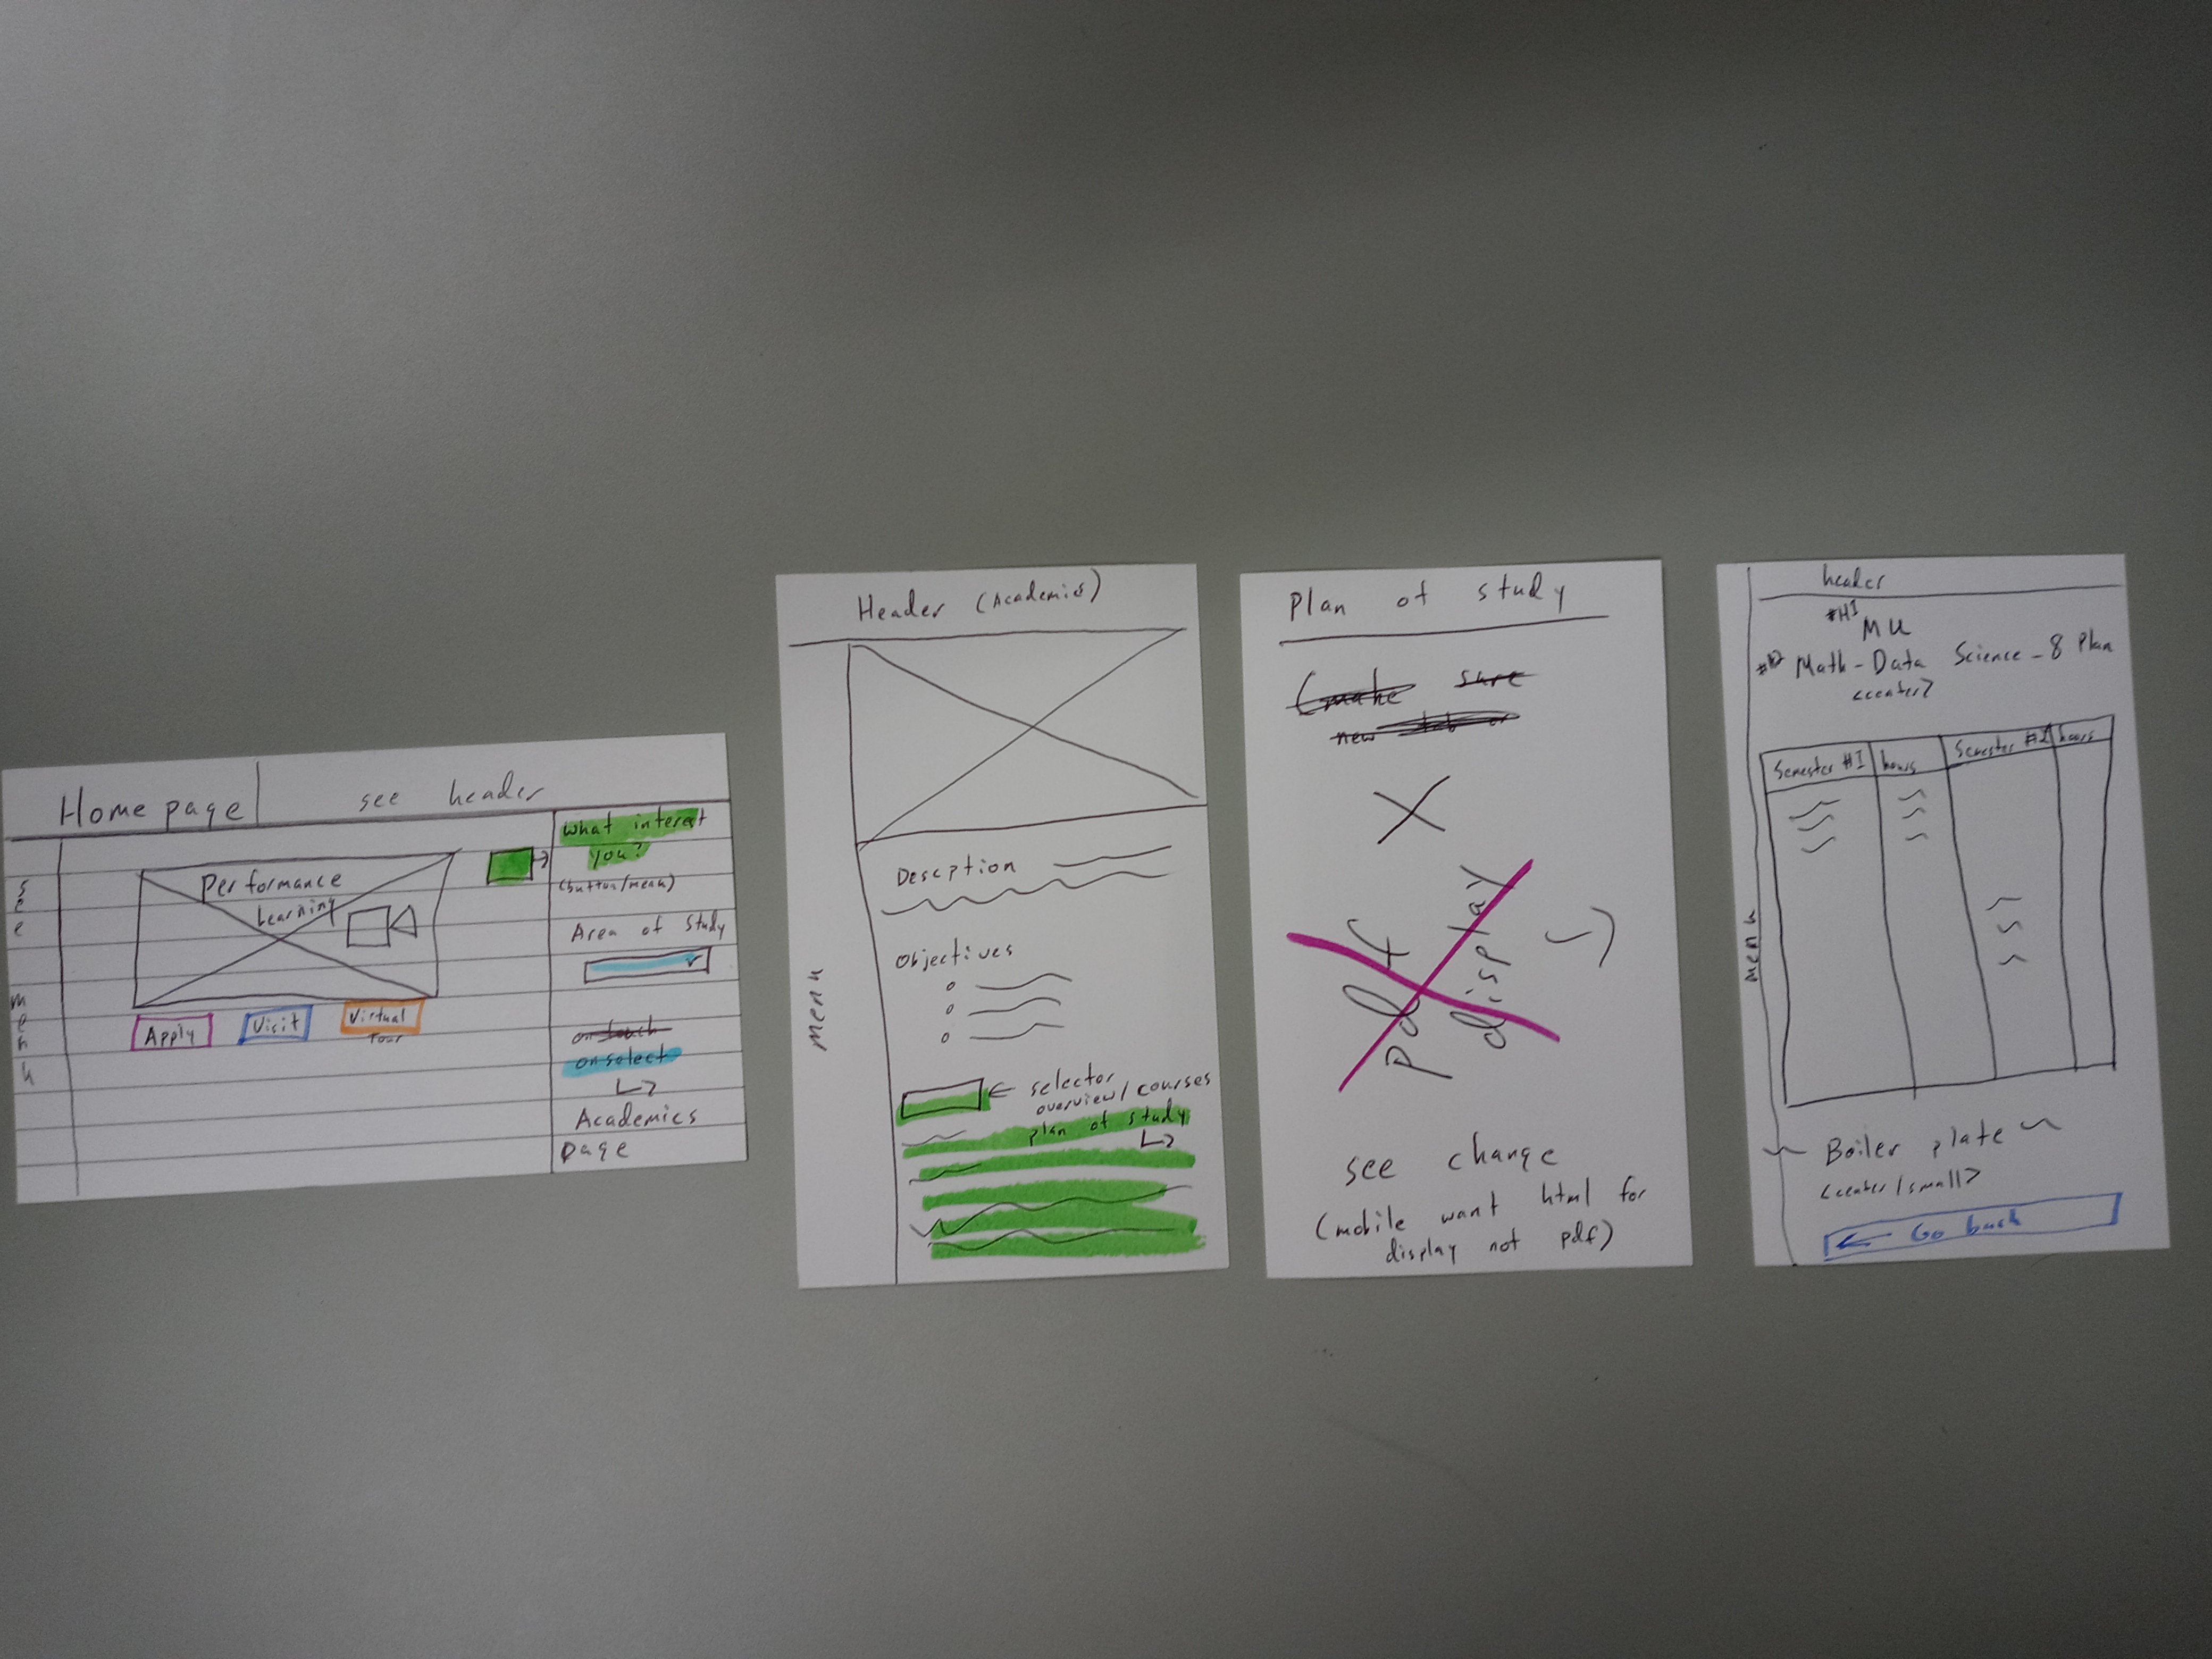 Homepage
see header
see menu
Performance
Learning
Apply
Visit
Virtual
Tour
what interest
you?
(button/menu)
Area of study
on touch
on select
Academics
page
Header (Academics)
menu
Descption
Objectives
selector
overview/courses
plan of study
Plan of study
(make sure
new tab or
X
pdf
display
see change
(mobile want html for
display not pdf)
header
#H1
MU
Math-Data Science-8 Plan
<center>
menu
Semester #1
hours
Semester #2
hours
Boiler plate
<center/small>
Go back